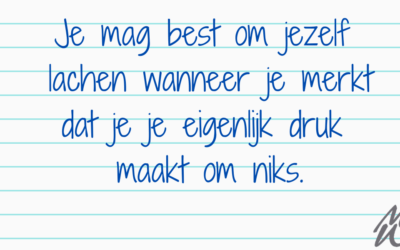 Je mag best om jezelf
lachen wanneer je merkt
dat je je eigenlijk druk
maakt om niks.